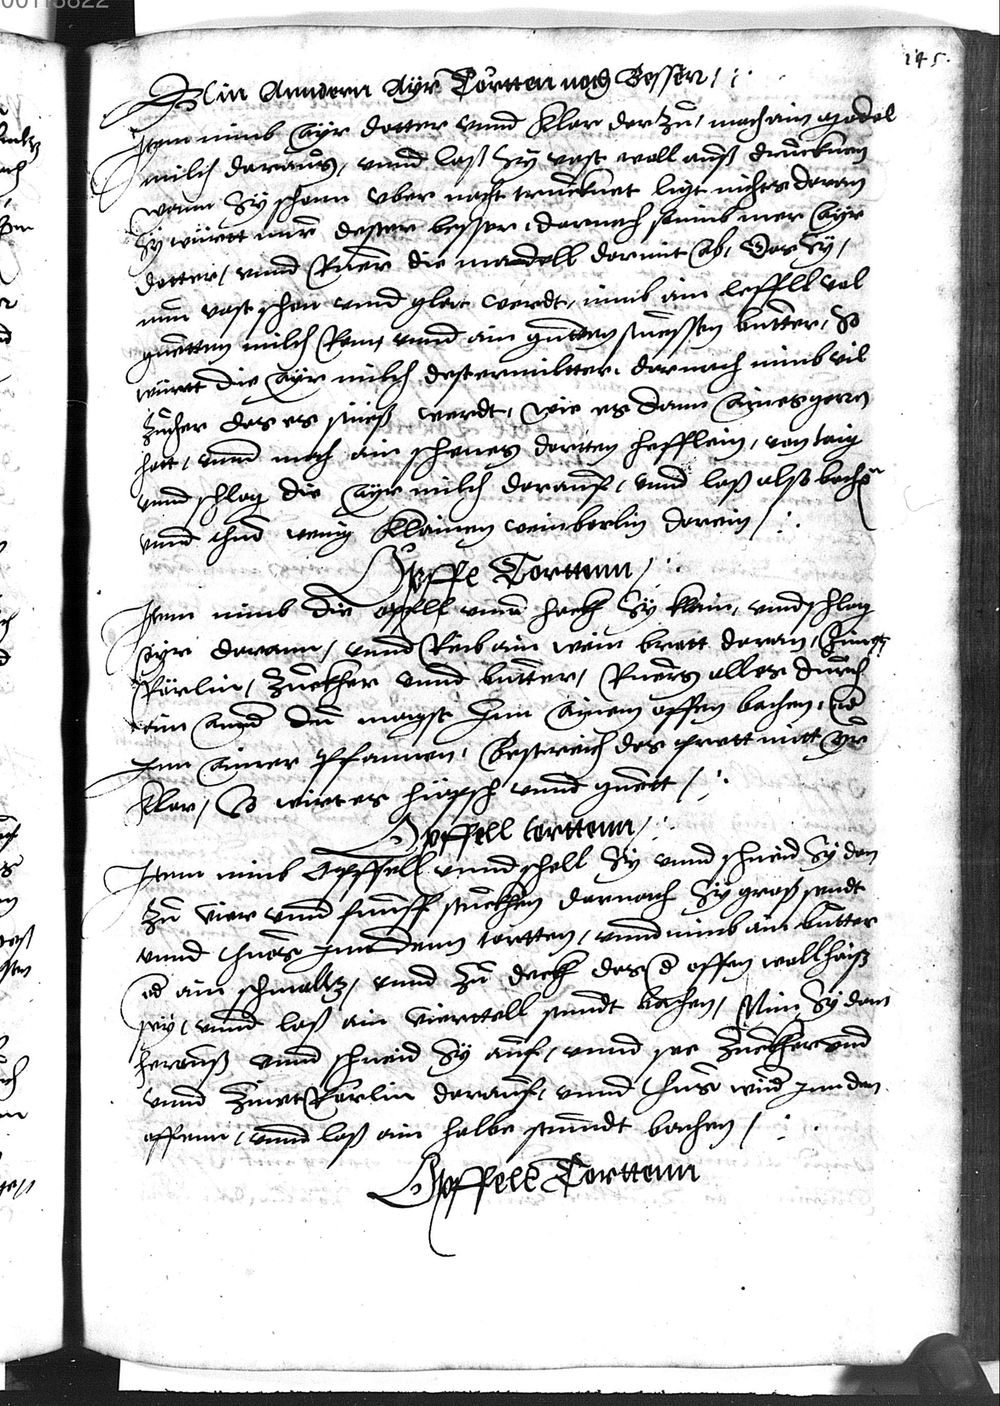 145.
Ain Anndern Ayr Tortten noch Besser /
Item nimb Ayr dotter vnnd Klar der zu / mach ain
milch daraus / vnnd laß Sy vast woll auß druckhnen
wann Sy schonn vber nacht truckhnet ligt nichts daran
Sy württ nur dester besser / darnach nimb mer Ayr
dotter / vnnd Ruer die mandell darmit Ab / Das Sy /
nun vast schön vnnd glat werdt / nimb ain leffell vol
guetten milch Ram vnnd ain guetten süessen butter / So
württ die Ayr milch dester miltter / darnach nimb vil
Zucher das es sues werdt / wie es dann Aines geren
hatt / vnnd mach ain schenes dortten hefflein / von taig
vnnd schlag die Ayr milch darauf / vnnd laß alls bachen
vnnd thue wenig Klainen weinberlin darein /
Opffe Torttenn /
Item nimb die opffell vnnd hackh Sy klain / vnnd schlag
Ayr darann / vnnd Reib ain wein bratt daran /
Rörlin / Zuckher vnnd butter / Ruers alles durch
ein annd du magst Inn Ainem offen bachen / od
Inn Ainer Pfannen / Bestreich das prett mitt Ayr
Klar / So wirt es hüpsch vnnd guett /
Opffell torttenn /
Item nimb Opffell vnnd schell Sy vnnd schneid Sy dan
zu vier vnnd funff stuckhen darnach Sy groß sendt
vnnd thuos Inn denn tortten / vnnd nimb ain butter
od ain schmaltz / vnnd zu deckh das d offen woll haiß
sey / vnnd laß ain vierttell stundt bachen / Nim Sy dan
heraus vnnd schneid Sy auf / vnnd see Zuckher vnd
vnnd Zimet Rörlin darauf / vnnd thus wider Inn den
offenn / vnnd laß ain halbe stundt bachen /
Opffell Torttenn